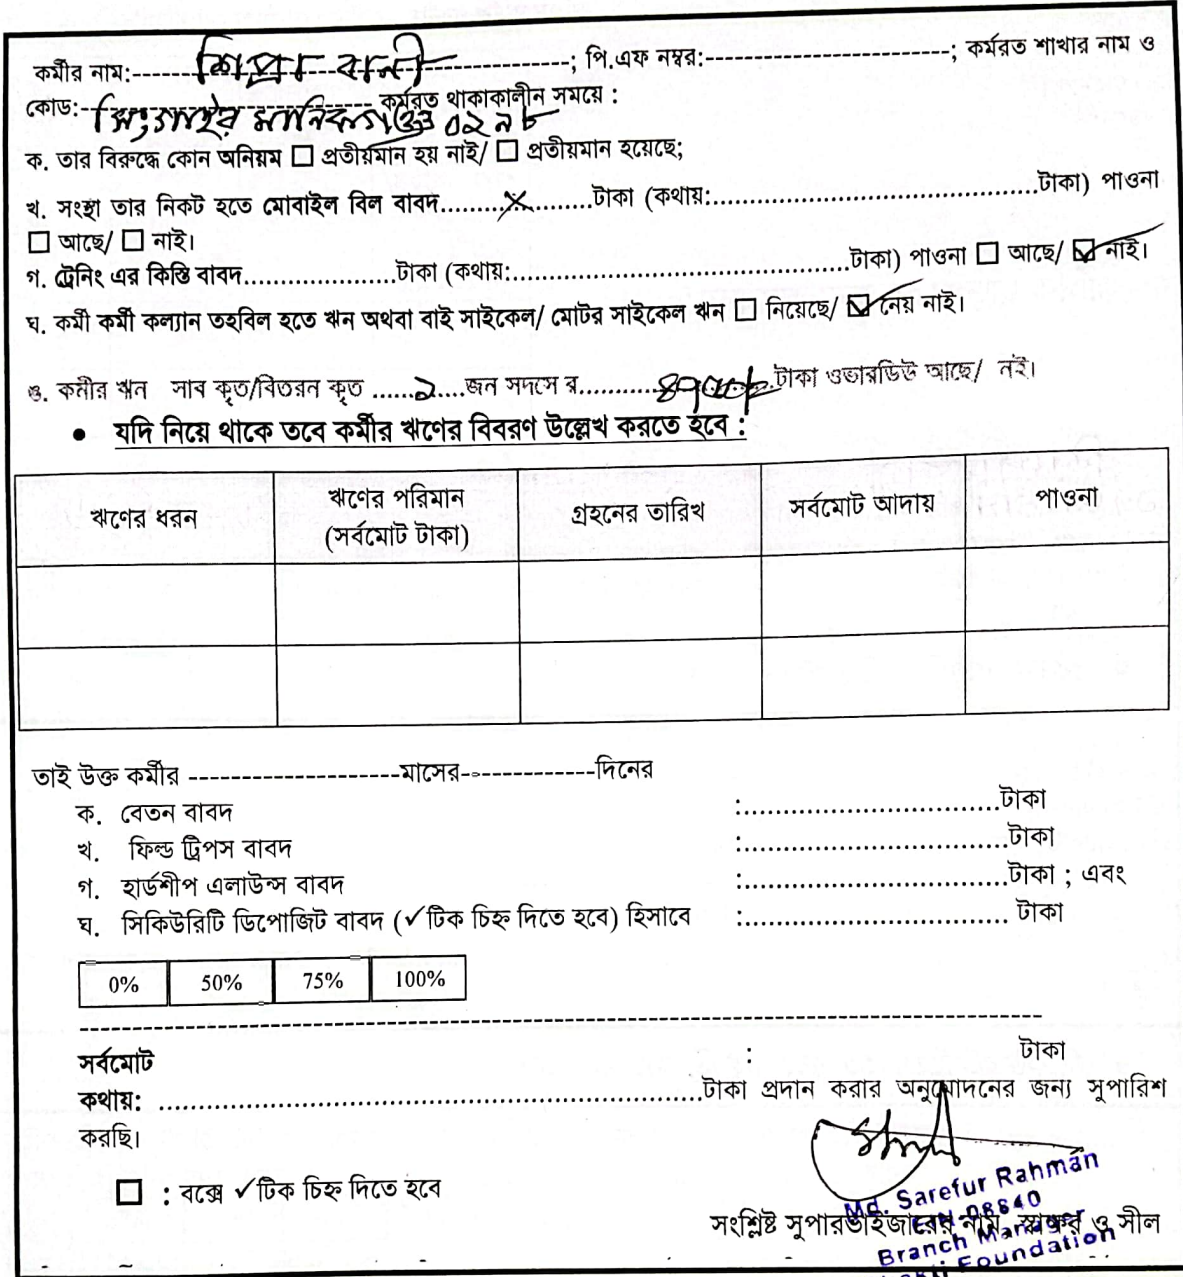 কর্মীর নাম:------শিপ্রা রানী------------; পি.এফ নম্বর:----------------------; কর্মরত শাখার নাম ও
কোড:-সিংগাইর মানিকগঞ্জ ০২৭৮ কর্মরত থাকাকালীন সময়ে :
ক. তার বিরুদ্ধে কোন অনিয়ম ☐ প্রতীয়মান হয় নাই/ ☐ প্রতীয়মান হয়েছে;
খ. সংস্থা তার নিকট হতে মোবাইল বিল বাবদ........×........টাকা (কথায়:......................................টাকা) পাওনা
☐ আছে/ ☐ নাই।
গ. ট্রেনিং এর কিস্তি বাবদ..................টাকা (কথায়:........................................টাকা) পাওনা ☐ আছে/ ☑ নাই।
ঘ. কর্মী কর্মী কল্যান তহবিল হতে ঋন অথবা বাই সাইকেল/ মোটর সাইকেল ঋন ☐ নিয়েছে/ ☑ নেয় নাই।
ঙ. কর্মীর ঋন সাব কৃত/বিতরন কৃত ......২...জন সদসে র..................টাকা ওভারডিউ আছে/ নই।
• যদি নিয়ে থাকে তবে কর্মীর ঋণের বিবরণ উল্লেখ করতে হবে :
ঋণের ধরন ঋণের পরিমান (সর্বমোট টাকা) গ্রহনের তারিখ সর্বমোট আদায় পাওনা
তাই উক্ত কর্মীর --------------------মাসের-------------দিনের
ক. বেতন বাবদ :..............................টাকা
খ. ফিল্ড ট্রিপস বাবদ :..............................টাকা
গ. হার্ডশীপ এলাউন্স বাবদ :..............................টাকা ; এবং
ঘ. সিকিউরিটি ডিপোজিট বাবদ (✓টিক চিহ্ন দিতে হবে) হিসাবে :.............................. টাকা
0% 50% 75% 100%
সর্বমোট : টাকা
কথায়: ..............................................................টাকা প্রদান করার অনুমোদনের জন্য সুপারিশ
করছি।
☐ : বক্সে ✓টিক চিহ্ন দিতে হবে
Md. Sarefur Rahman
08840
সংশ্লিষ্ট সুপারভাইজারের নাম, স্বাক্ষর ও সীল
Branch Manager
Foundation